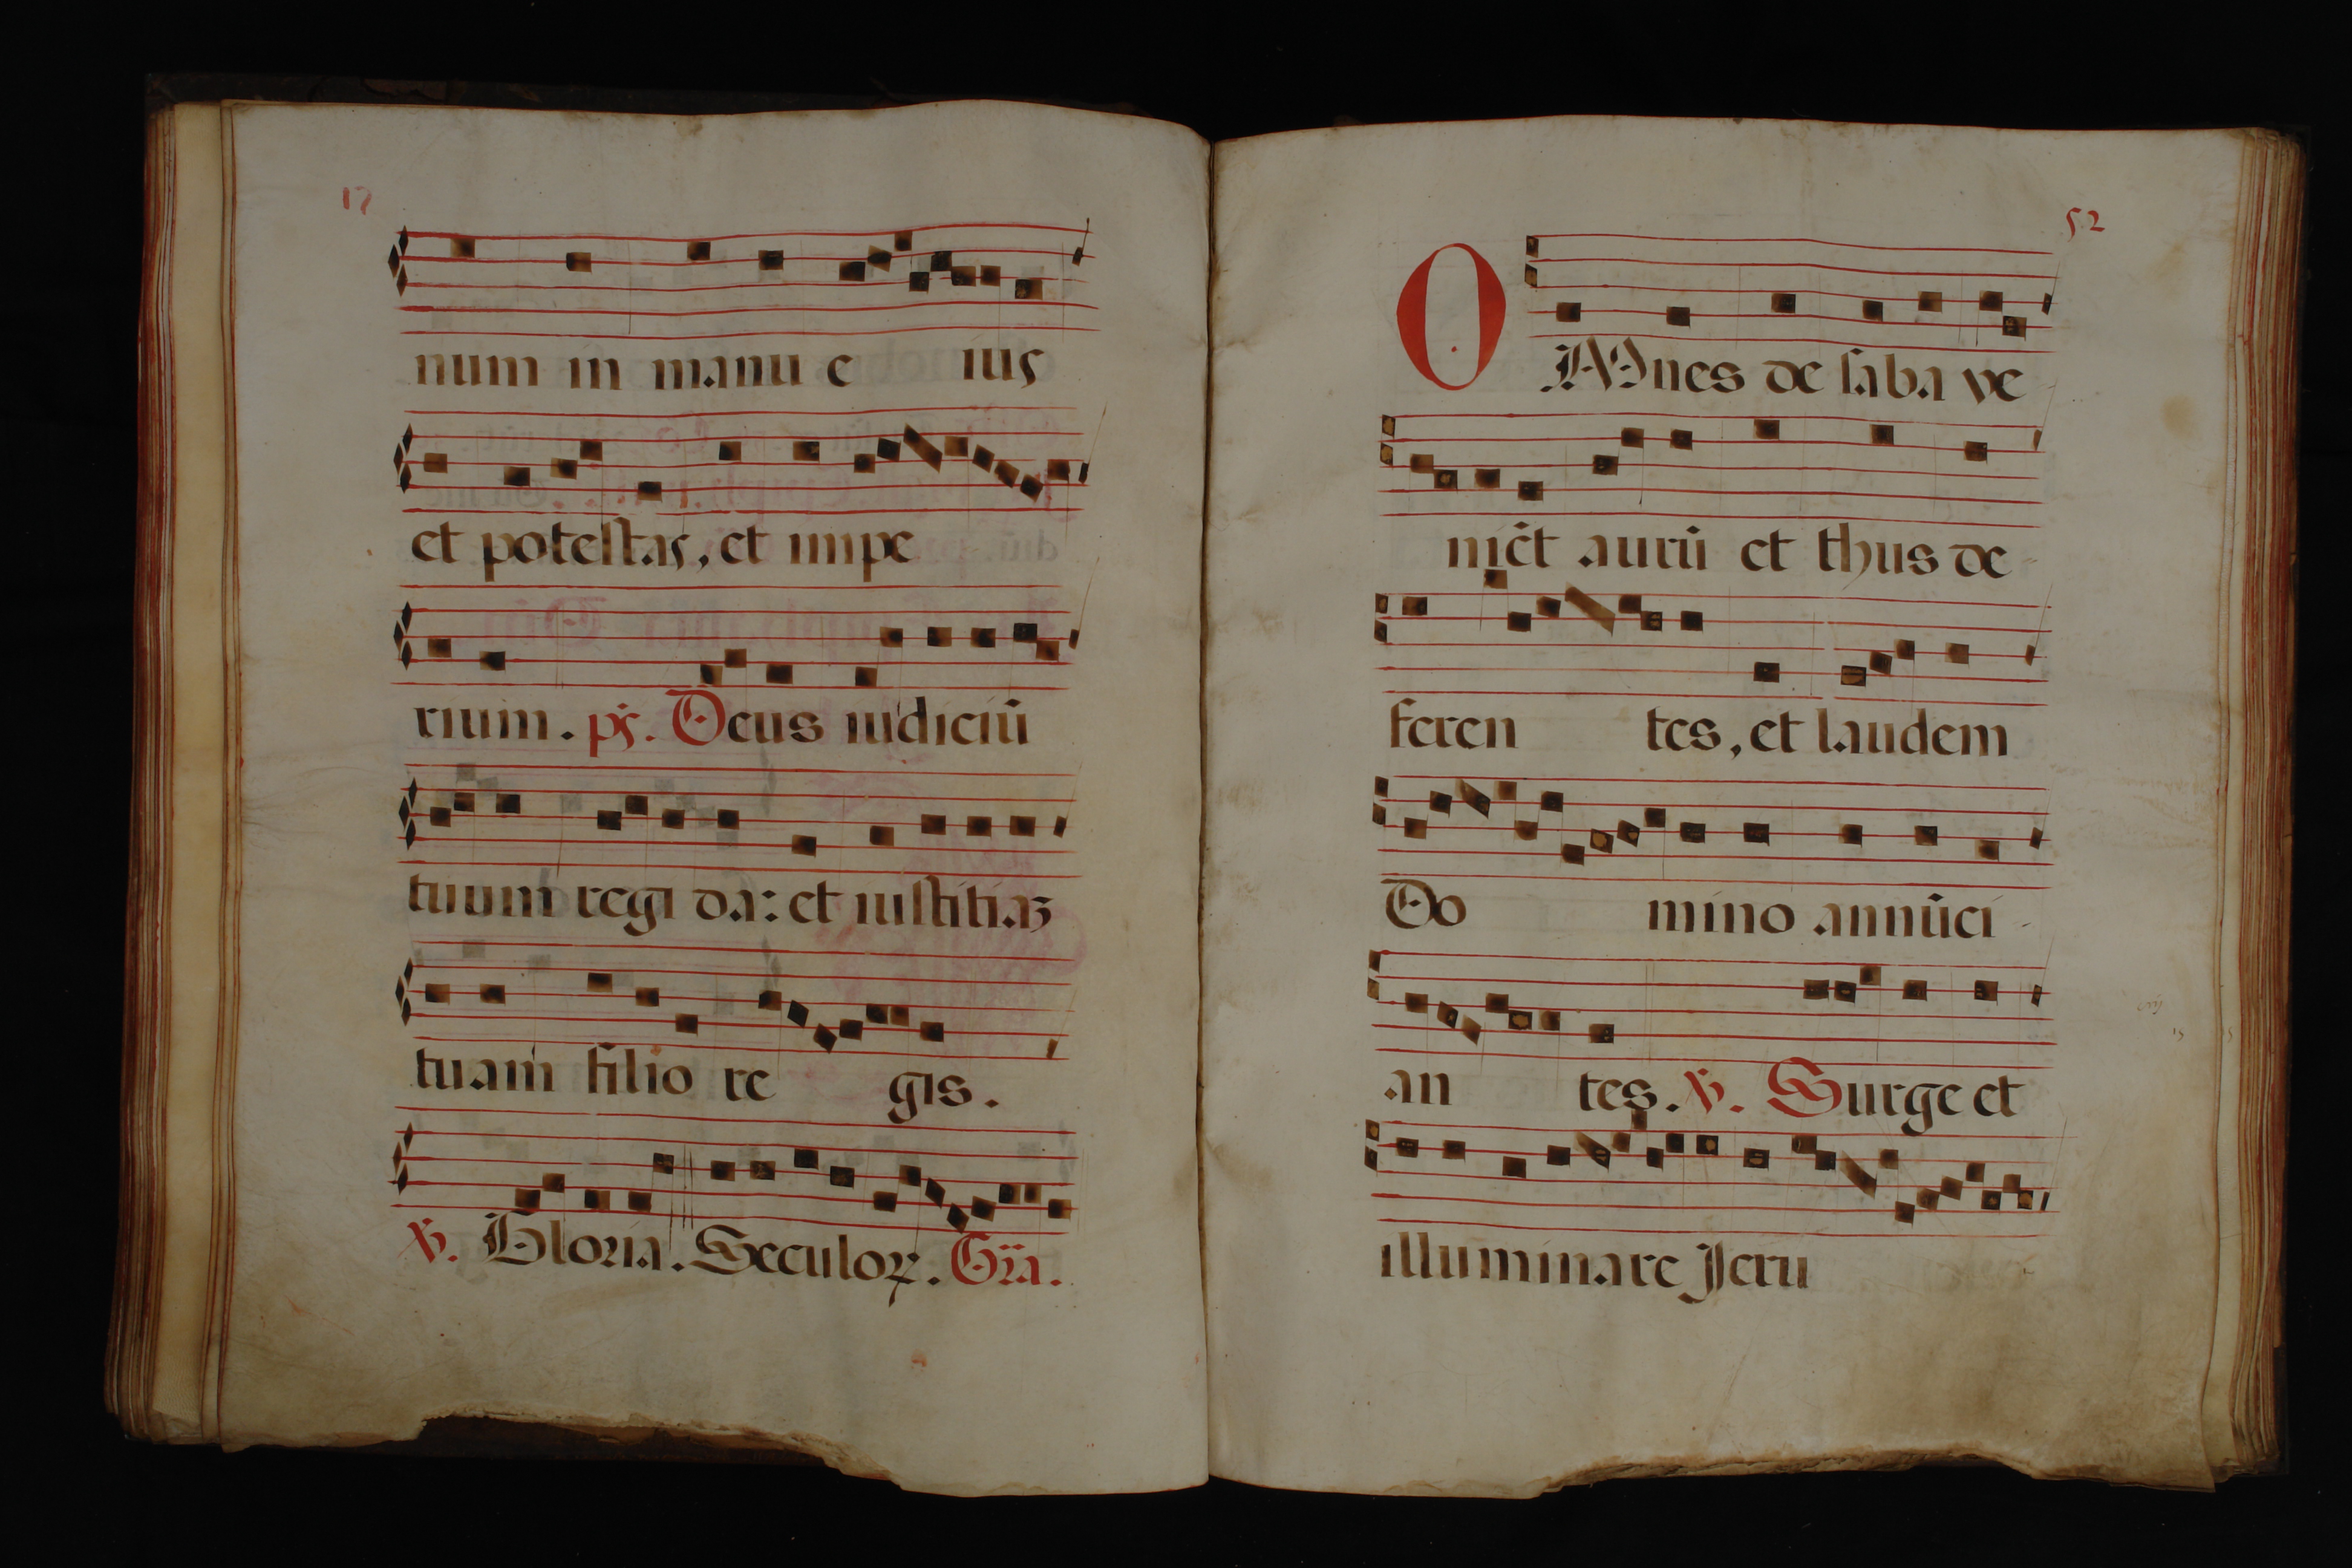 17
num in manu e ius
et potestas, et impe
rium. ps. Deus iudiciū
tuum regi da: et iustitiaz
tuam filio re gis.
℣. Gloria. Seculoꝝ. Grā.
52
OMnes de saba ve
niēt aurū et thus de-
feren tes, et laudem
Do mino annūci-
an tes. ℣. Surge et
illuminare Jeru